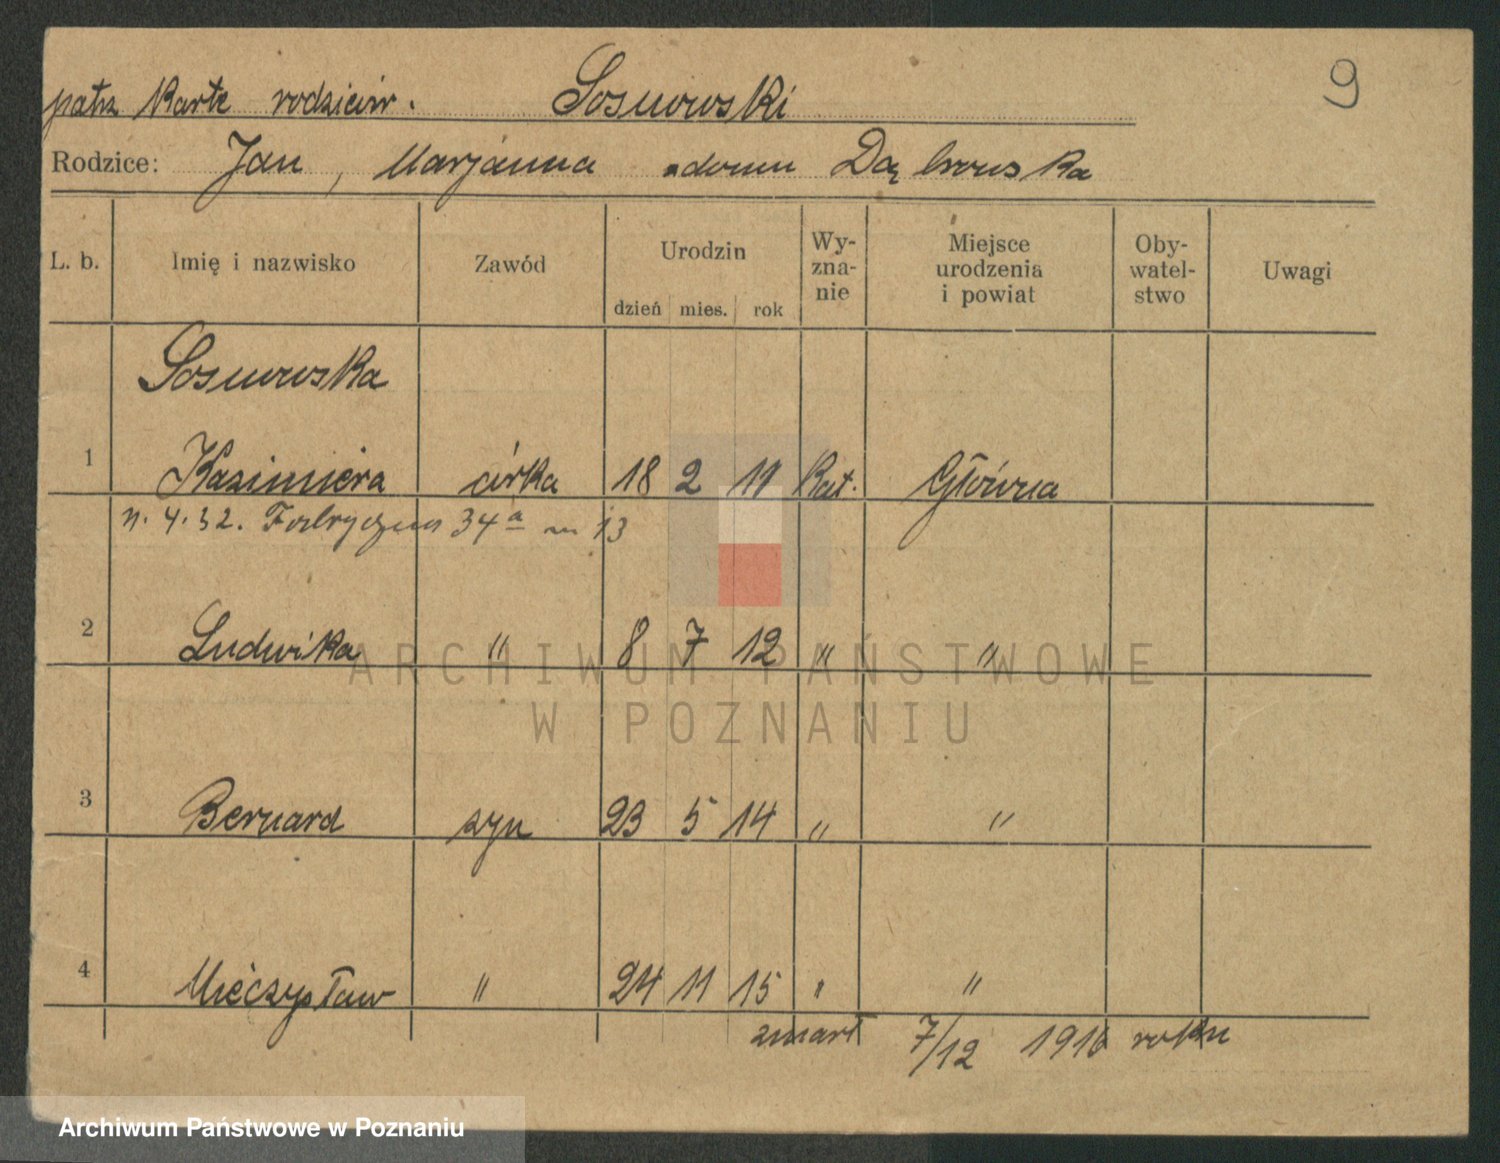 patrz kartę rodziców. Sosnowski 9
Rodzice: Jan, Marjanna z domu Dąbrowska
L. b. Imię i nazwisko Zawód Urodzin dzień mies. rok Wy-zna-nie Miejsce urodzenia i powiat Oby-watel-stwo Uwagi
Sosnowska
1 Kazimiera córka 18 2 11 Kat. Główna
n. 4. 32. Fabryczna 34a m 13
2 Ludwika " 8 7 12 " "
ARCHIWUM PAŃSTWOWE
W POZNANIU
3 Bernard syn 23 5 14 " "
4 Mieczysław " 24 11 15 " "
zmarł 7/12 1916 roku
Archiwum Państwowe w Poznaniu